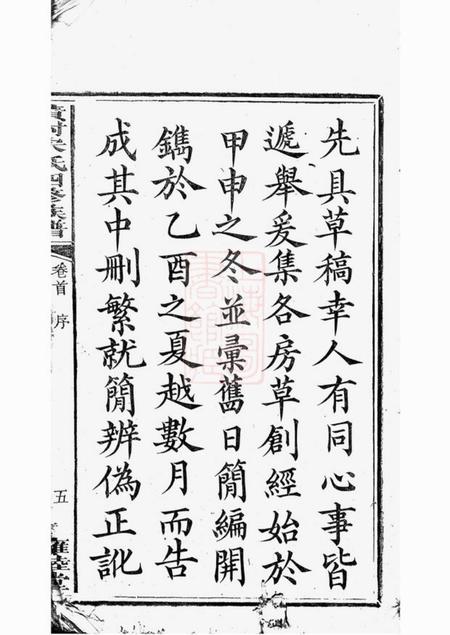 先具草稿幸人有同心事皆
遞舉爰集各房草創經始於
甲申之冬並彚舊日簡編開
鐫於乙酉之夏越數月而告
成其中刪繁就簡辨偽正訛
氏四修族譜
卷首 序
五
睦堂